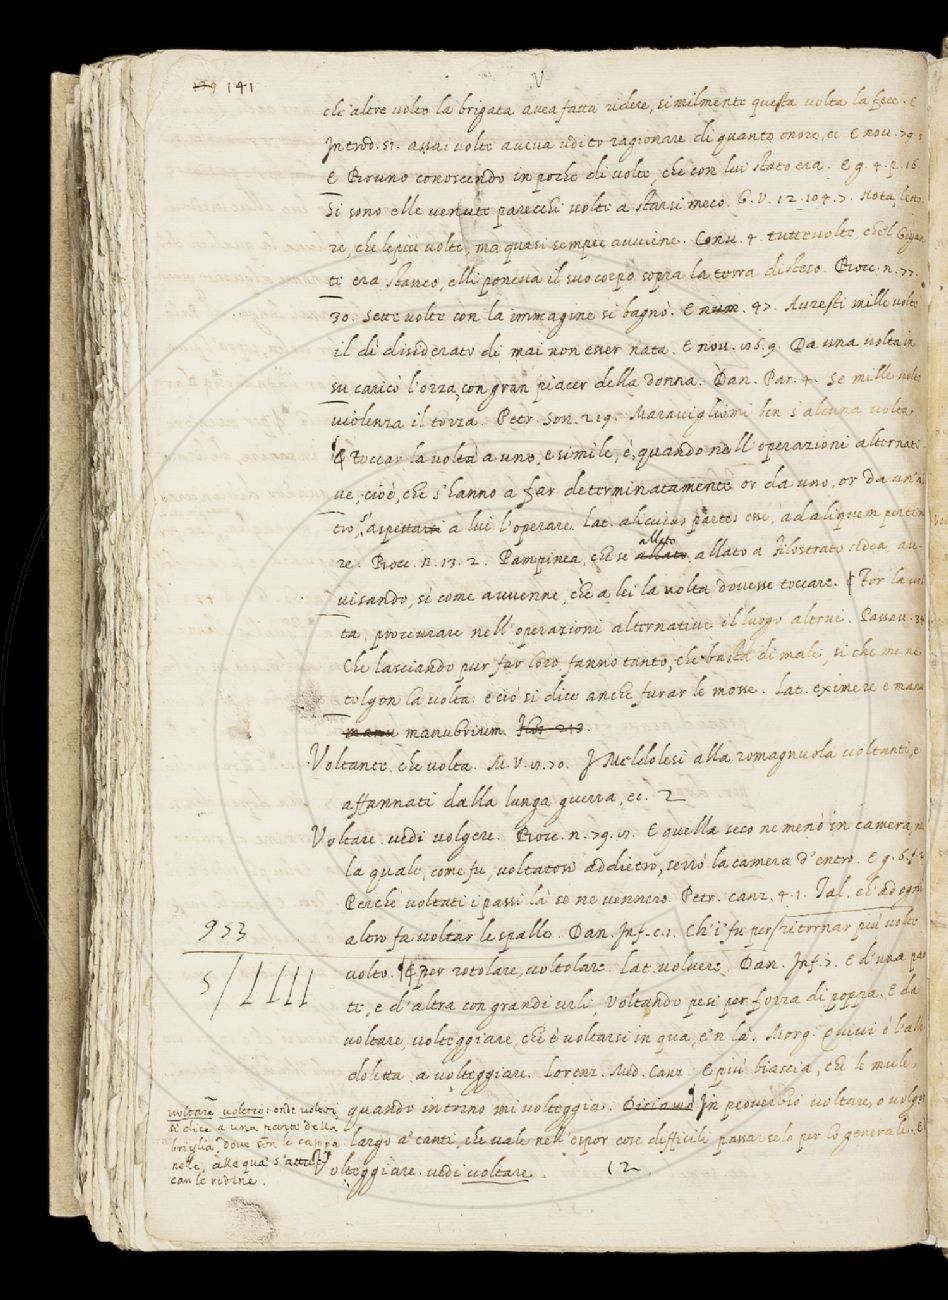 141
V
che altre volte la brigata avea fatta ridere, similmente questa volta la fece. E
Introd. 51. assai volte aveva udito ragionare di quanto onore, ec. E nov. 79.
E Bruno conoscendo in poche di volte, che con lui stato era. E g. 4. p. 16.
Si sono elle venute parecchi volte a starsi meco. G. V. 12. 104. 7. Nota, letto
re, che le più volte, ma quasi sempre avviene. Conv. 4. tuttevolte, che'l Gigan
te era stanco, elli poneva il suo corpo sopra la terra disteso. Bocc. n. 77.
30. Sette volte con la immagine si bagnò. E num. 47. Avresti mille volte
il dì disiderato di mai non esser nata. E nov. 9. Da una volta in
su caricò l'orza, con gran piacer della donna. Dan. Par. 4. Se mille volte
violenza il torza. Petr. Son. 219. Maravigliomi ben s'alcuna volta.
Toccar la volta a uno, e simile, è, quando nell'operazioni alternati
ve, cioè, che s'hanno a far determinatamente or da uno, or da un'al
tro, s'aspetta a lui l'operare. Lat. alicuius partes esse, ad aliquem pertin
allato
re. Bocc. n. 13. 2. Pampinea, che se allato allato a Filostrato vedea, av-
visando, sì come avvenne, che a lei la volta dovesse toccare. Tor la vol
ta, procurare nell'operazioni alternative il luogo altrui. Passav. 34
Che lasciando pur far loro, fanno tanto, che basta di male, si che me ne
tolgon la volta: e ciò si dice anche furar le mosse. Lat. eximere e manu
manu manubrium.
Voltante, che volta. M. V. 70. I Meldolesi alla romagnuola voltanti, e
affannati dalla lunga guerra, ec. 2
Voltare. vedi volgere. Bocc. n. 79. E quella seco ne menò in camera,
la quale, come fu, voltatosi addietro, serrò la camera d'entro. E g. 6. f.
Perchè voltati i passi là se ne vennero. Petr. canz. 4. 1. Tal, ch'ad ogni
953
altro fa voltar le spalle. Dan. Inf. c. 1. Ch'i' fu per ritornar più volte
volto. E per rotolare, voltolare. Lat. volvere. Dan. Inf. 7. E d'una par
te, e d'altra con grandi urli, Voltando pesi per forza di poppa. E da
voltare, volteggiare, che è voltarsi in qua, e 'n là. Morg. E quivi è l'allo
doletta a volteggiare. Lorenz. Med. Canz. E più biascia, che le mule,
quando intorno mi volteggia. Diciamo In proverbio voltare, o volger
largo a' canti, che vale nell'espor cose difficili, passarsela per lo generale.
Volteggiare. vedi voltare. (2
onde
si dice a una parte della
briglia, dove son le campa
nelle, alle qua' s'
can le redine.